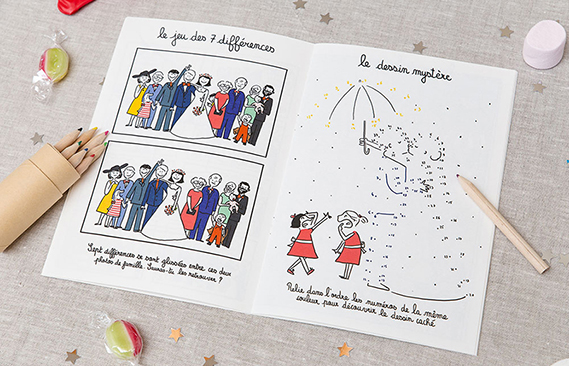 le jeu des 7 différences
Sept différences se sont glissées entre ces deux
photos de famille. Sauras-tu les retrouver ?
le dessin mystère
Relie dans l'ordre les numéros de la même
couleur pour découvrir le dessin caché